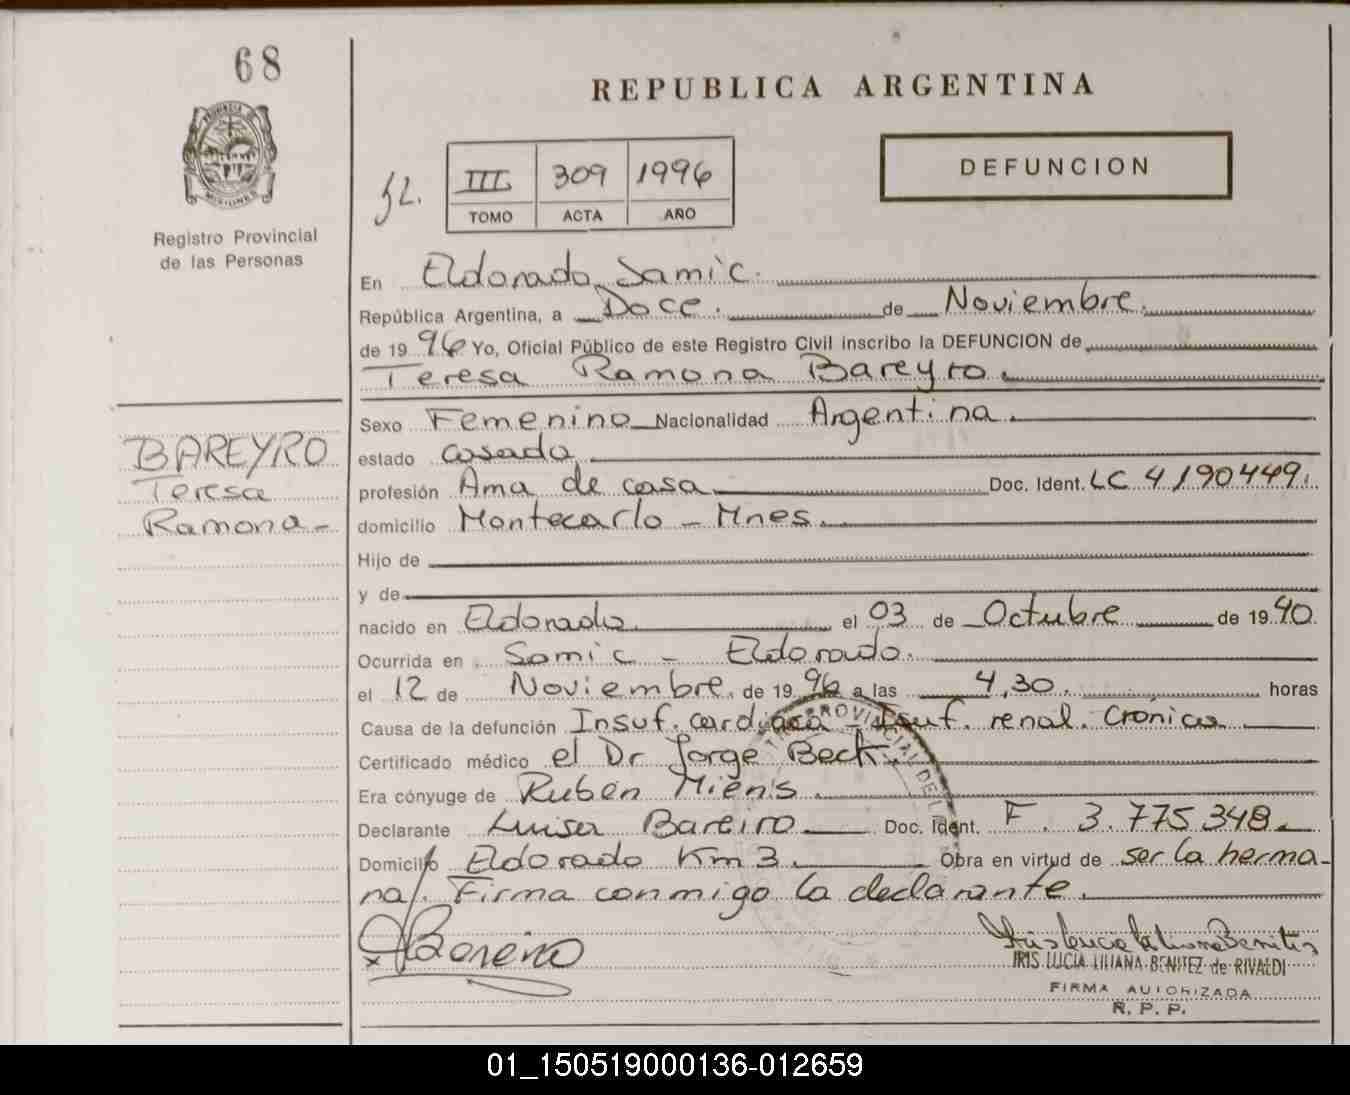 68
REPUBLICA ARGENTINA
PROVINCIA DE MISIONES
Registro Provincial
de las Personas
III 309 1996
TOMO ACTA AÑO
DEFUNCION
En Eldorado, Samic.
República Argentina, a Doce. de Noviembre.
de 19 96 Yo, Oficial Público de este Registro Civil inscribo la DEFUNCION de
Teresa Ramona Bareyro.
BAREYRO
Teresa
Ramona-
Sexo Femenino Nacionalidad Argentina.
estado casada
profesión Ama de casa Doc. Ident. LC 4190449.
domicilio Montecarlo - Mnes.
Hijo de
y de
nacido en Eldorado. el 03 de Octubre de 19 40.
Ocurrida en Samic - Eldorado.
el 12 de Noviembre. de 19 96 a las 4,30. horas
Causa de la defunción Insuf. cardiaca - Insuf. renal. Crónica
Certificado médico el Dr Jorge Beck.
Era cónyuge de Rubén Miens.
Declarante Luisa Bareiro Doc. Ident. F. 3.775.348.
Domicilio Eldorado Km 3. Obra en virtud de ser la herma-
na/. Firma conmigo la declarante.
IRIS LUCIA LILIANA BENITEZ de RIVALDI
FIRMA AUTORIZADA
R. P. P.
01_150519000136-012659